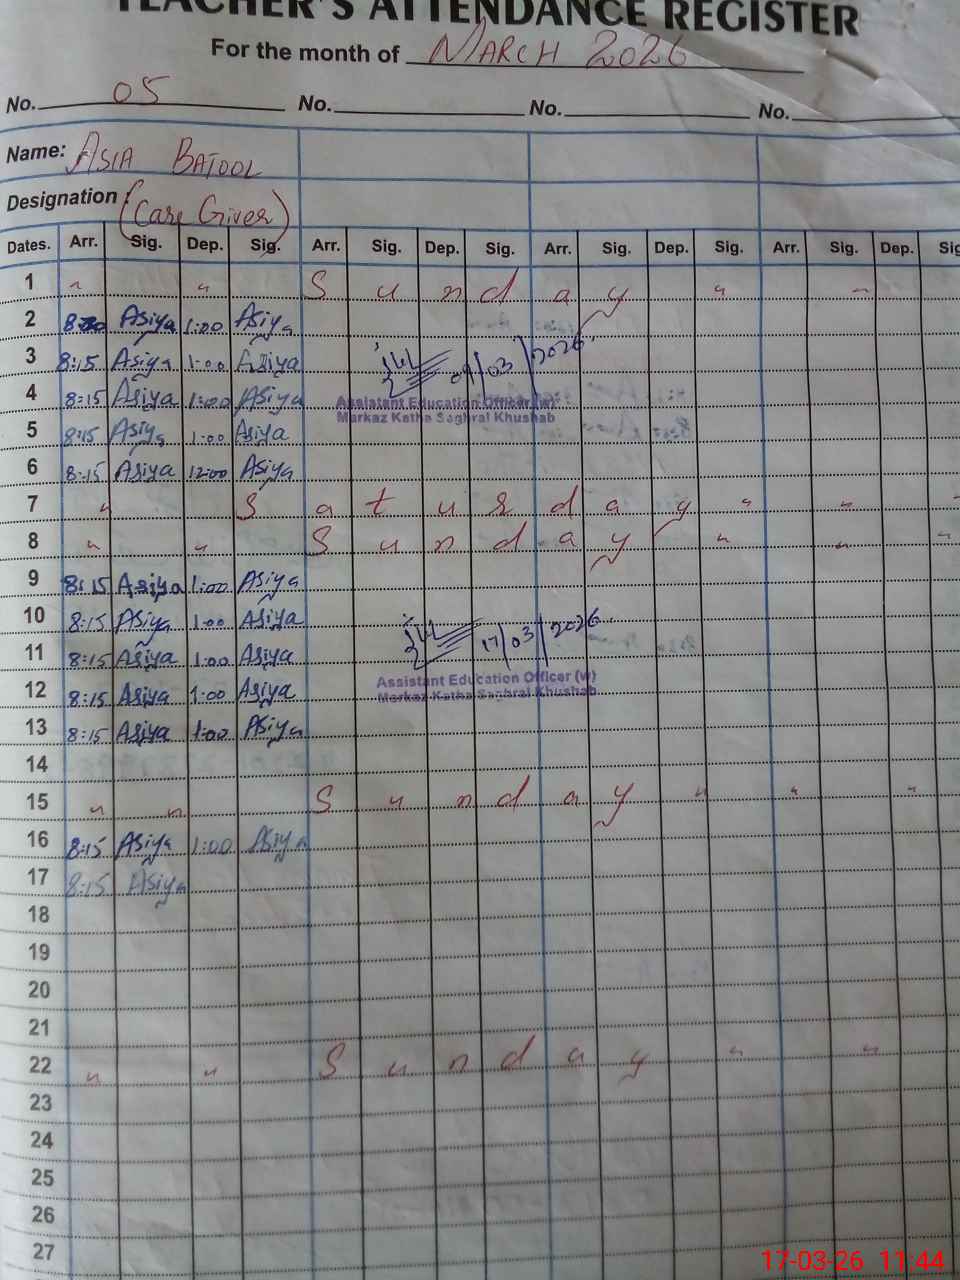 TEACHER'S ATTENDANCE REGISTER
For the month of MARCH 2026
No. 05 No. No. No.
Name: ASIA BATOOL
Designation (Care Giver)
Dates. Arr. Sig. Dep. Sig. Arr. Sig. Dep. Sig. Arr. Sig. Dep. Sig. Arr. Sig. Dep. Sig
1 " " S u n d a y " "
2 Asiya 1:00 Asiya
3 8:15 Asiya 1:00 Asiya
09/03/2026
4 8:15 Asiya 1:00 Asiya
Assistant Education Officer (w)
Markaz Katha Saghral Khushab
5 8:15 Asiya 1:00 Asiya
6 8:15 Asiya 12:00 Asiya
7 " S a t u r d a y " "
8 " " S u n d a y " " "
9 8:15 Asiya 1:00 Asiya
10 8:15 Asiya 1:00 Asiya
17/03/2026
11 8:15 Asiya 1:00 Asiya
Assistant Education Officer (w)
Markaz Katha Saghral Khushab
12 8:15 Asiya 1:00 Asiya
13 8:15 Asiya 1:00 Asiya
14
15 " " S u n d a y " " "
16 8:15 Asiya 1:00 Asiya
17 8:15 Asiya
18
19
20
21
22 " " S u n d a y " "
23
24
25
26
27
17-03-26 11:44